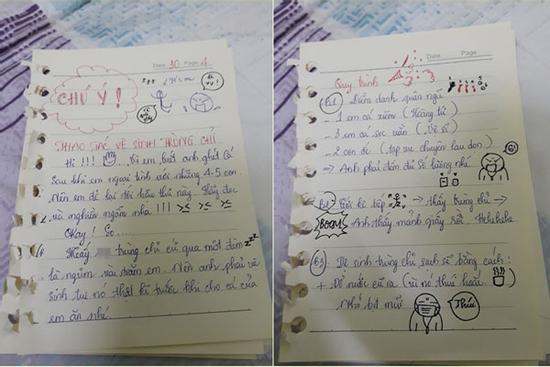 Date 30 Page 4
CHÚ Ý!
THAO TÁC VỆ SINH TRÙNG CHỈ
Hi!!! Vì em biết anh ghét cá
Sau khi em người tính với những 4-5 con
Nên em để lại tôi hậu thư này. Hãy đọc
và nghiền ngẫm nha!!!
Okay! So...
Mấy trùng chỉ cứ qua một đêm zzz
là ngủm rau răm em. Nên anh phải vệ
sinh tụi nó thật kĩ trước khi cho cá của
em ăn nhé
Date Page
Quy trình 4:3
B1 Điểm danh quân ngũ
_ 1 em cá xiêm (Hoàng tử)
_ 3 em cá sọc vằn (Vệ sĩ)
_ 2 con ốc (tạp vụ chuyên lau dọn)
→ Anh phải đếm đủ số lượng nhé
B2 Gới kế bếp → thấy trùng chỉ →
BOOM! Anh thấy mảnh giấy rồi Hahahaha
B3 Vệ sinh trùng chỉ sạch sẽ bằng cách:
+ Đổ nước cũ ra (tụi nó thúi hoắc)
Nhớ bịt mũi
Thúi